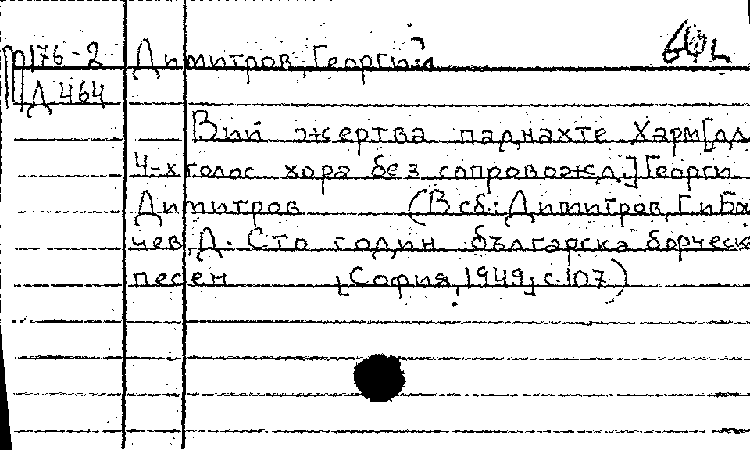 М176-2 Димитров, Георги
Д 464
Вий жертва паднахте Харм[дл
4-х голос хора без сопровожд.] Георги
Димитров (В сб.: Димитров, Г и Бъ
чев, Д. Сто годин българска борческ
песен [София, 1949] с. 107)